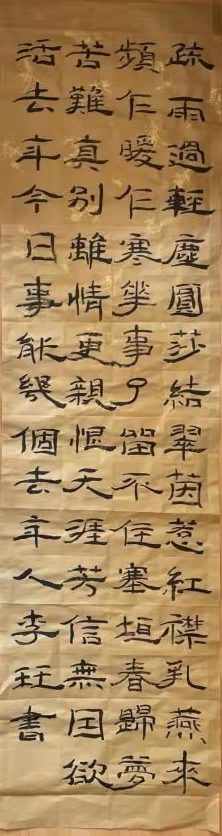 疏雨過輕塵圓莎結翠茵惹紅襟乳燕來
頻乍暖乍寒華事了留不住塞垣春歸夢
苦難真別離情更親恨天涯芳信無因欲
話去年今日事能幾個去年人李書